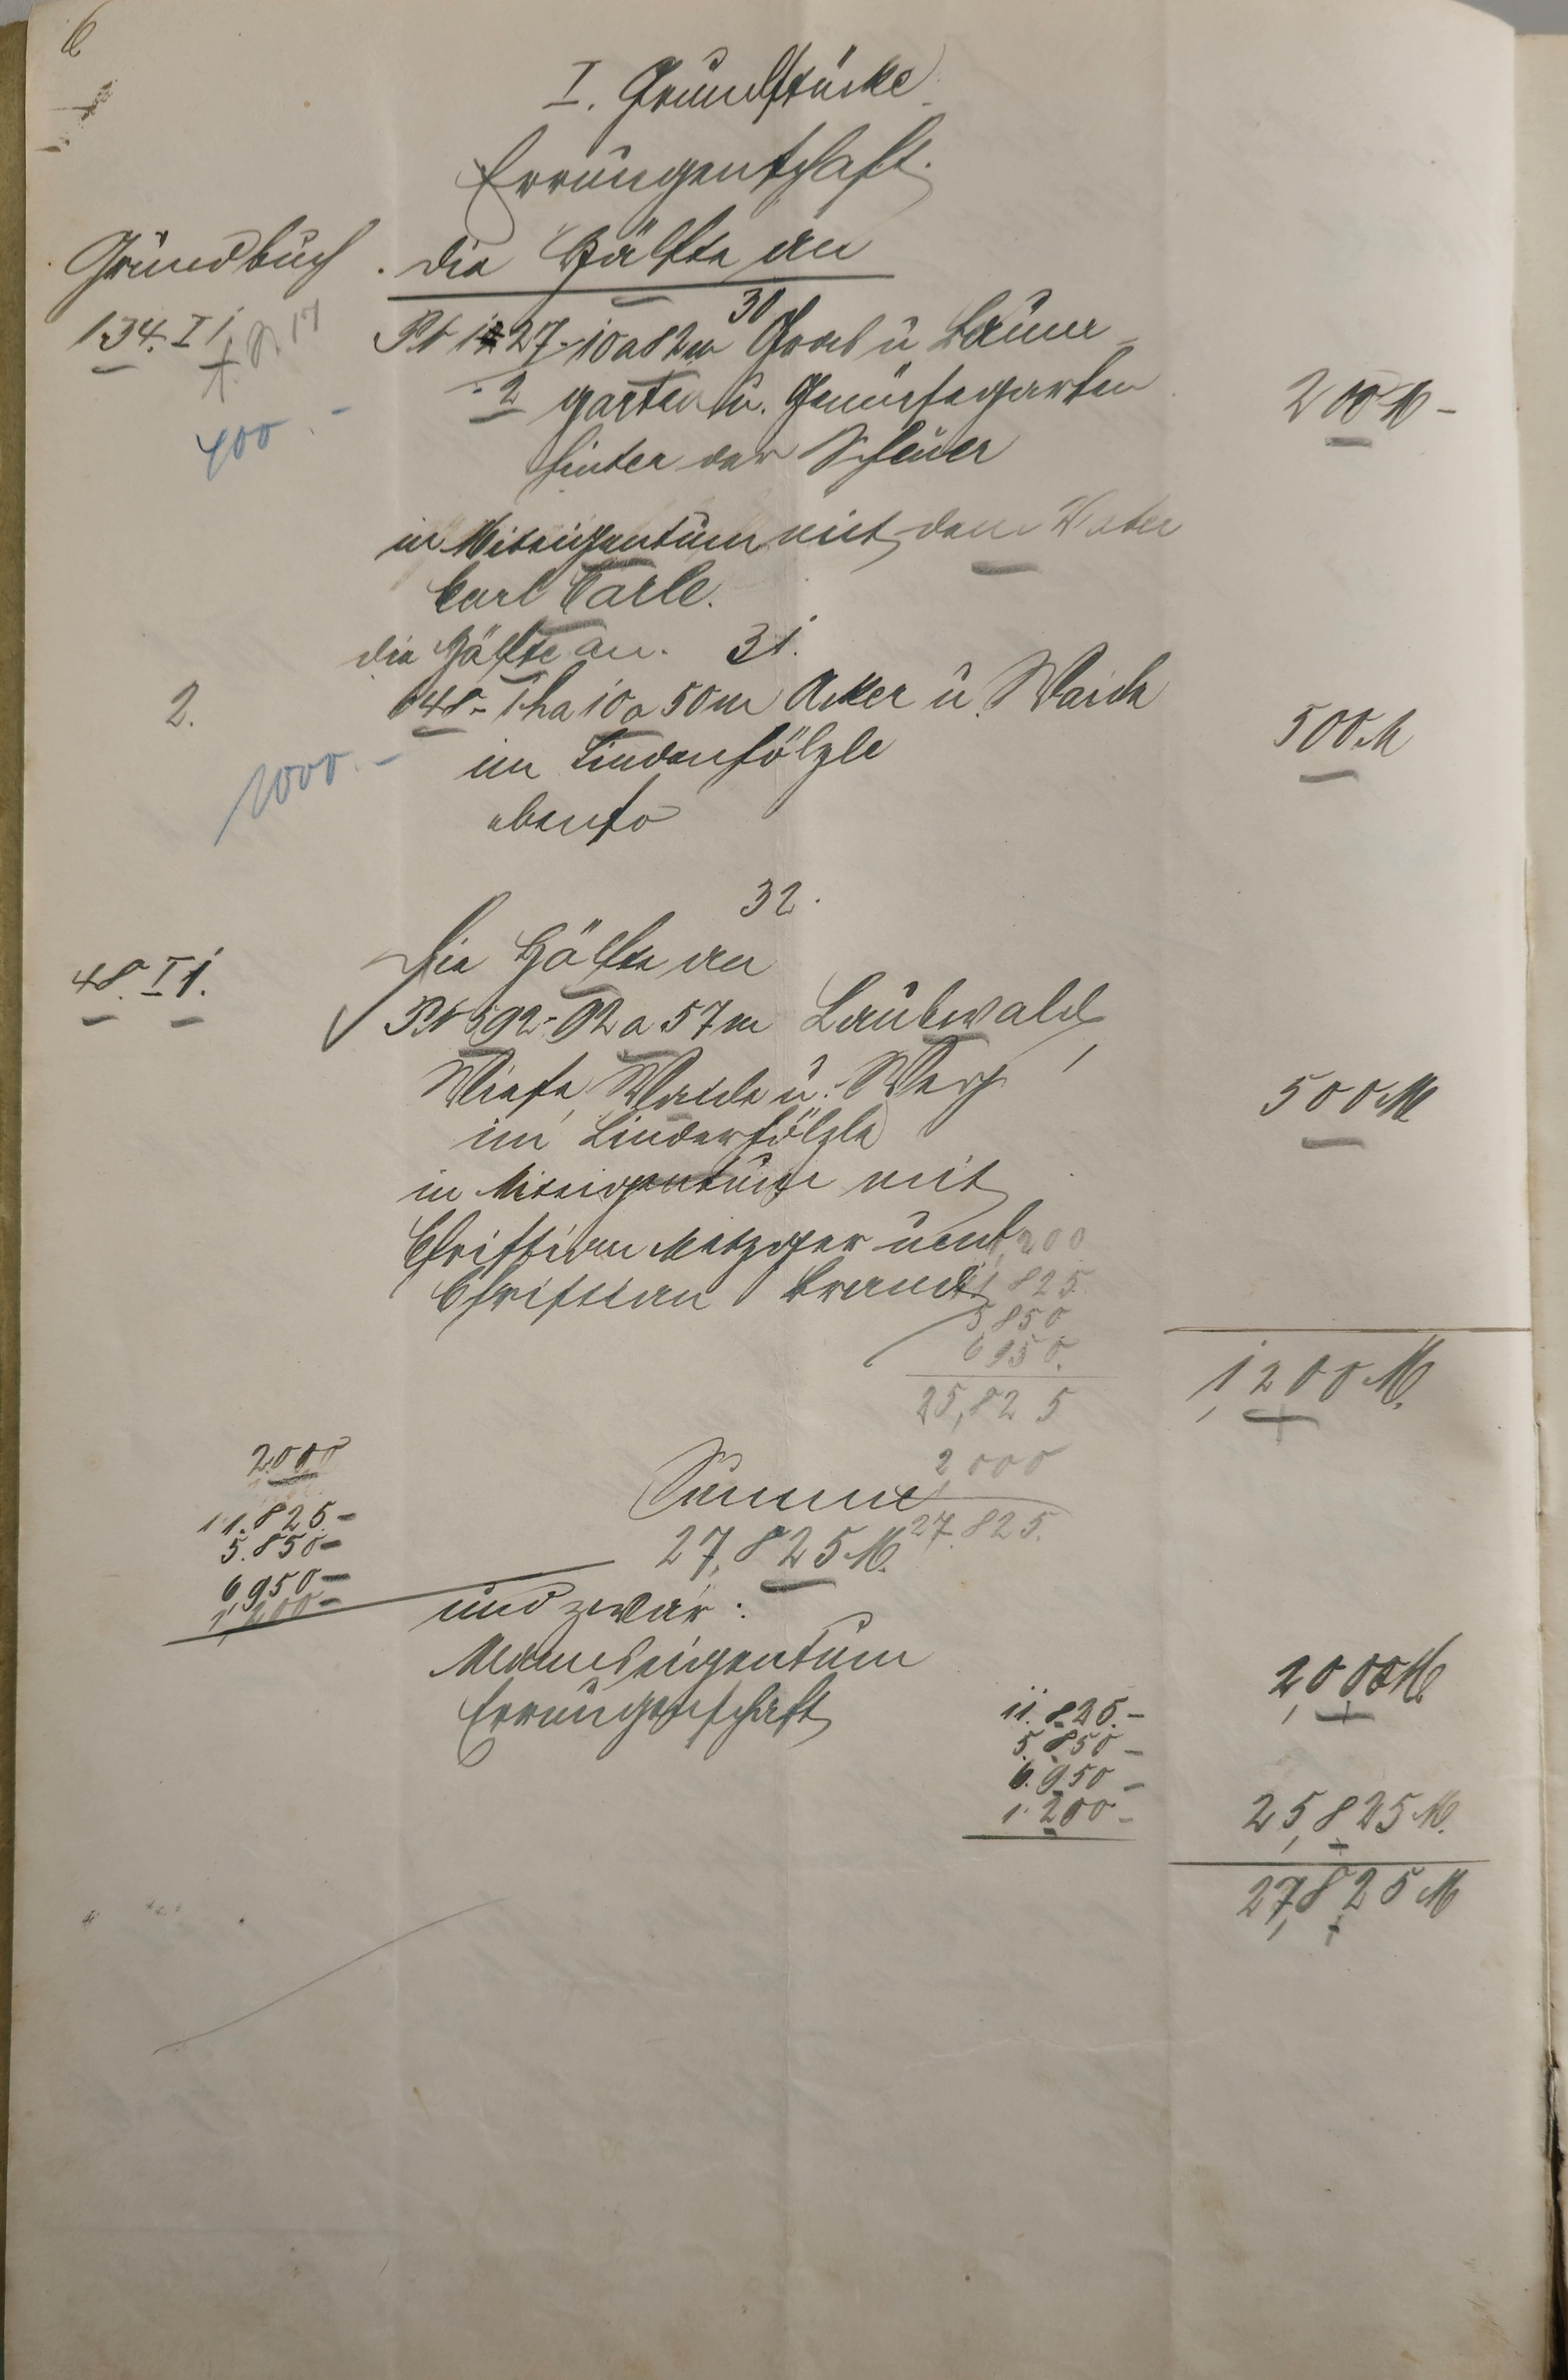 6
I. Grundstücke
Errungenschaft.
Grundbuch
die Hälfte an
134. I 1
30
P. N 127 - 10 a 82 m Gras u Baum-
2
garten u. Gemüsegarten
200 M -
400.-
hinter der Scheuer
in Miteigentum mit dem Vater
Carl Carle.
die Hälfte an. 31.
2.
48 - 1 ha 10 a 50 m Acker u. Waide
500 M
1000.-
im Lindenhölzle
ebenso
32.
48. I 1.
die Hälfte an
P. N 592 - 92 a 57 m Laubwald,
Wiese, Waide u. Weg
500 M
im Lindenhölzle
in Miteigentum mit
Christian Metzger und
1,200
Christian Brand
11 825.
5 850
6 950.
1,200 M.
25,825
2,000
27.825.
2000
11.825.-
5.850-
6 950-
1,200-
Summe
27,825 M.
und zwar:
Manneseigentum
2,000 M
Errungenschaft
11.825.-
5.850-
6.950-
1.200-
25,825 M.
27,825 M